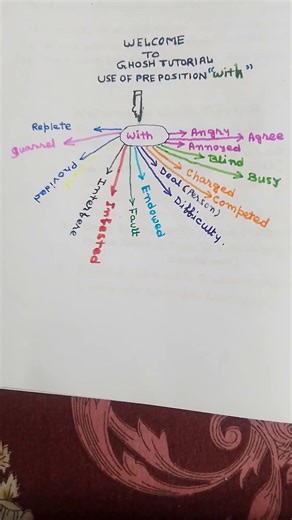 WELCOME
TO
GHOSH TUTORIAL
USE OF PREPOSITION "with"
With
Angry
Agree
Annoyed
Blind
Busy
Charged
Competed
Deal (Person)
Difficulty.
Endowed
Fault
Infested
Interbere
Provided
quarrel
Replete